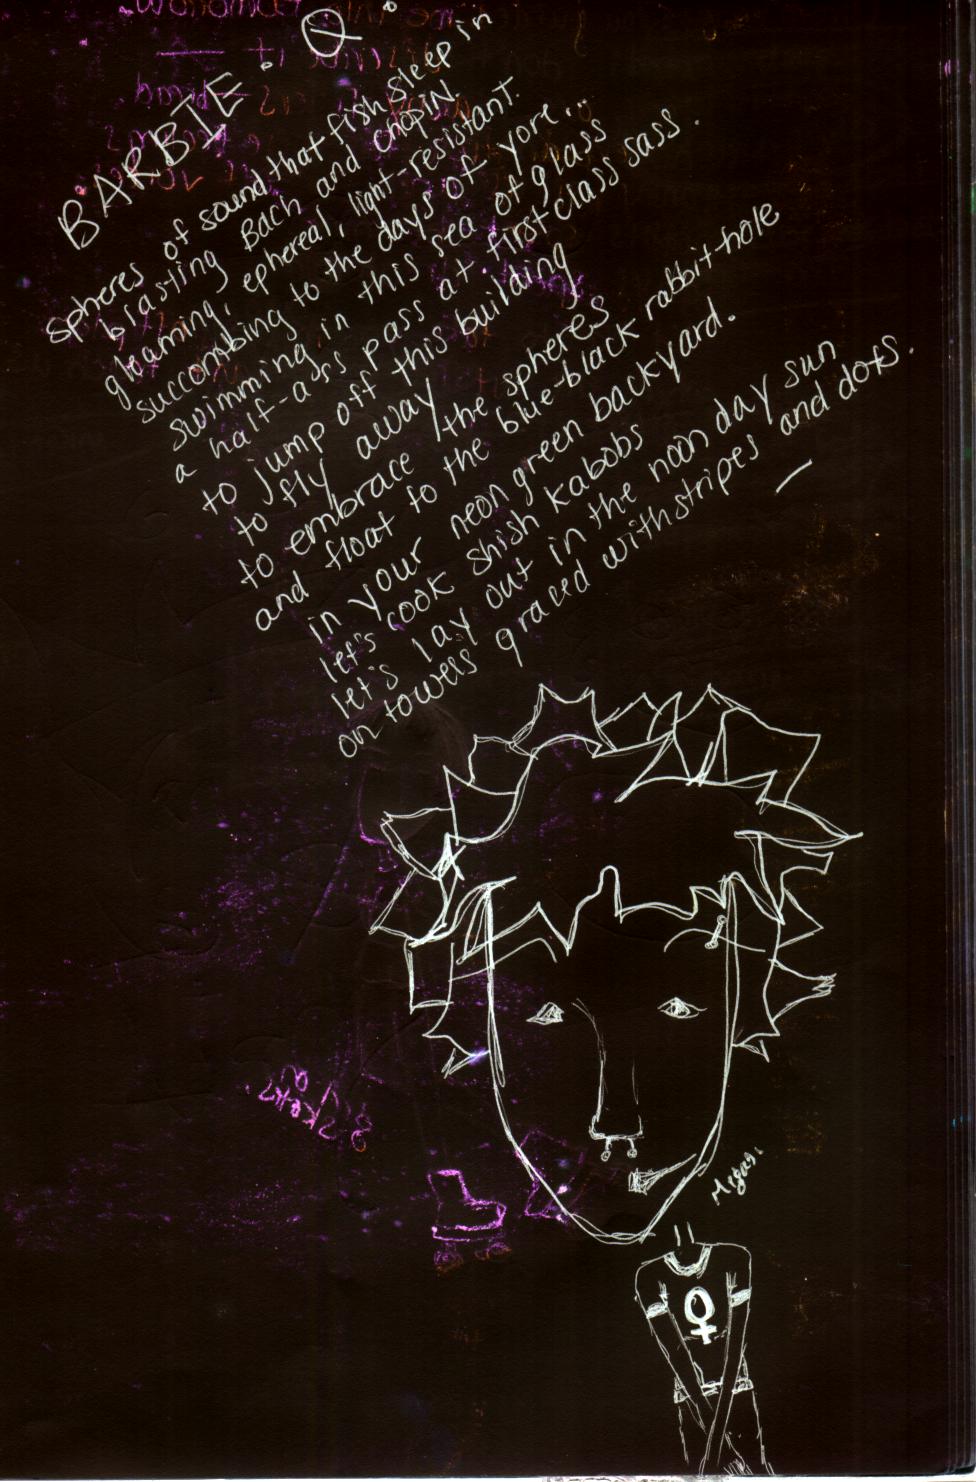 BARBIE · Q °
spheres of sound that fish sleep in
blasting Bach and chopin.
gleaming, ephereal, light-resistant.
succombing to the days of yore...
swimming in this sea of glass
a half-a$$ pass at first-class sass.
to jump off this building
to fly away
to embrace the spheres
and float to the blue-black rabbit-hole
in your neon green backyard.
let's cook shish kabobs
let's lay out in the noon day sun
on towels graced with stripes and dots.
—
Megan.